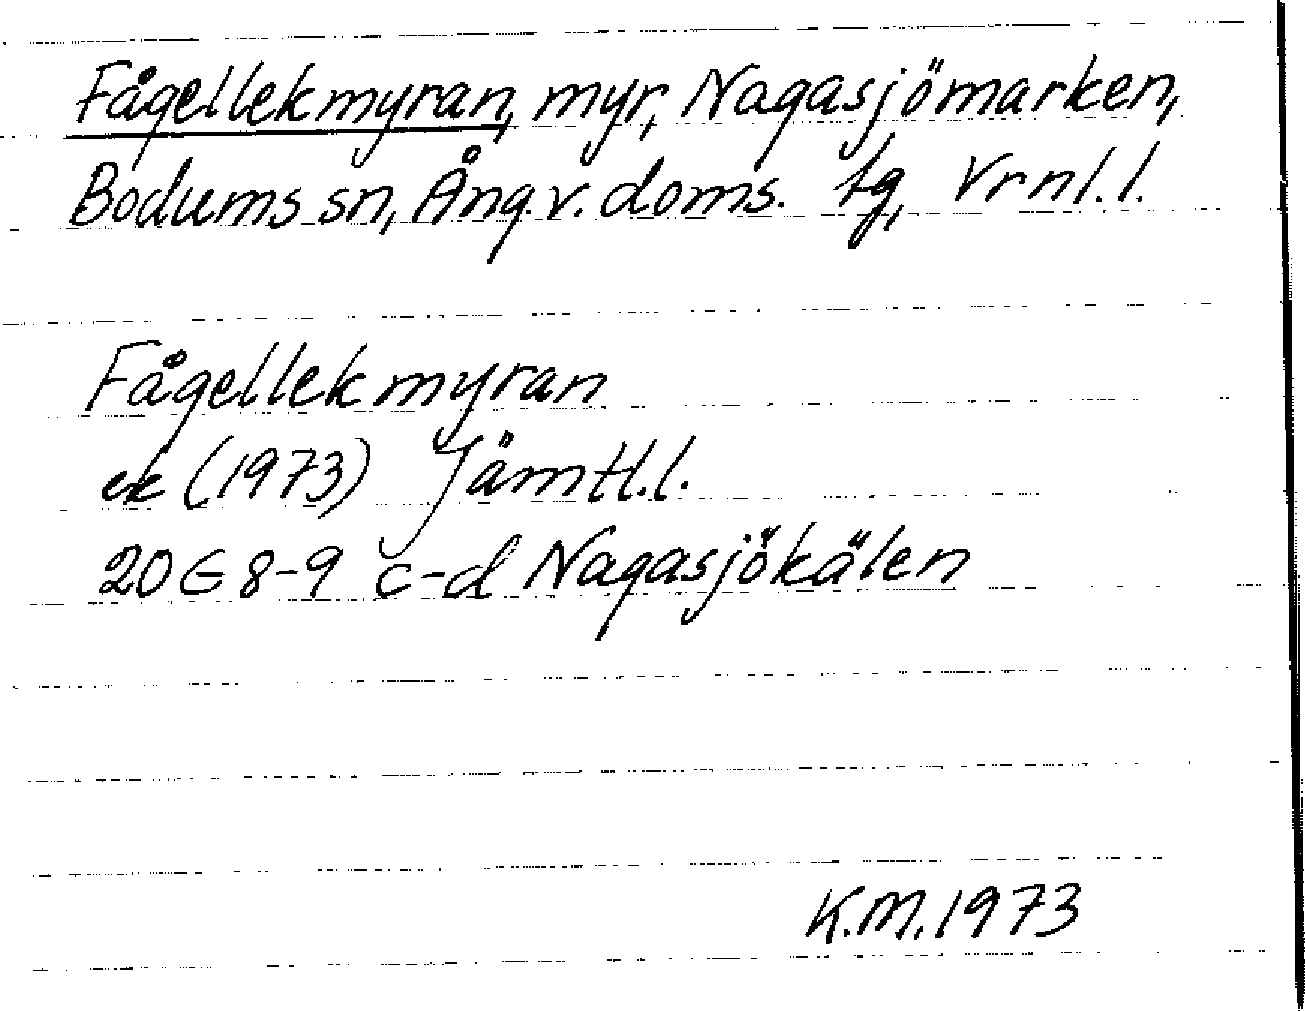 Fågellekmyran, myr, Nagasjömarken,
Bodums sn, Ång.v. doms. tg, Vrnl.l.
Fågellekmyran
ek (1973) Jämtl.l.
20G 8-9 c-d Nagasjökälen
K.M. 1973